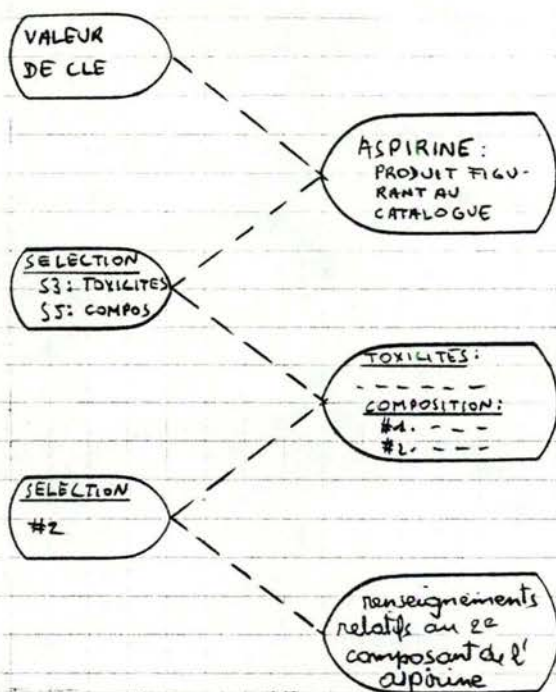 VALEUR
DE CLE
ASPIRINE :
PRODUIT FIGU-
RANT AU
CATALOGUE
SELECTION
S3: TOXICITES
S5: COMPOS
TOXICITES :
COMPOSITION :
#1.
#2.
SELECTION
#2
renseignements
relatifs au 2e
composant de l'
aspirine